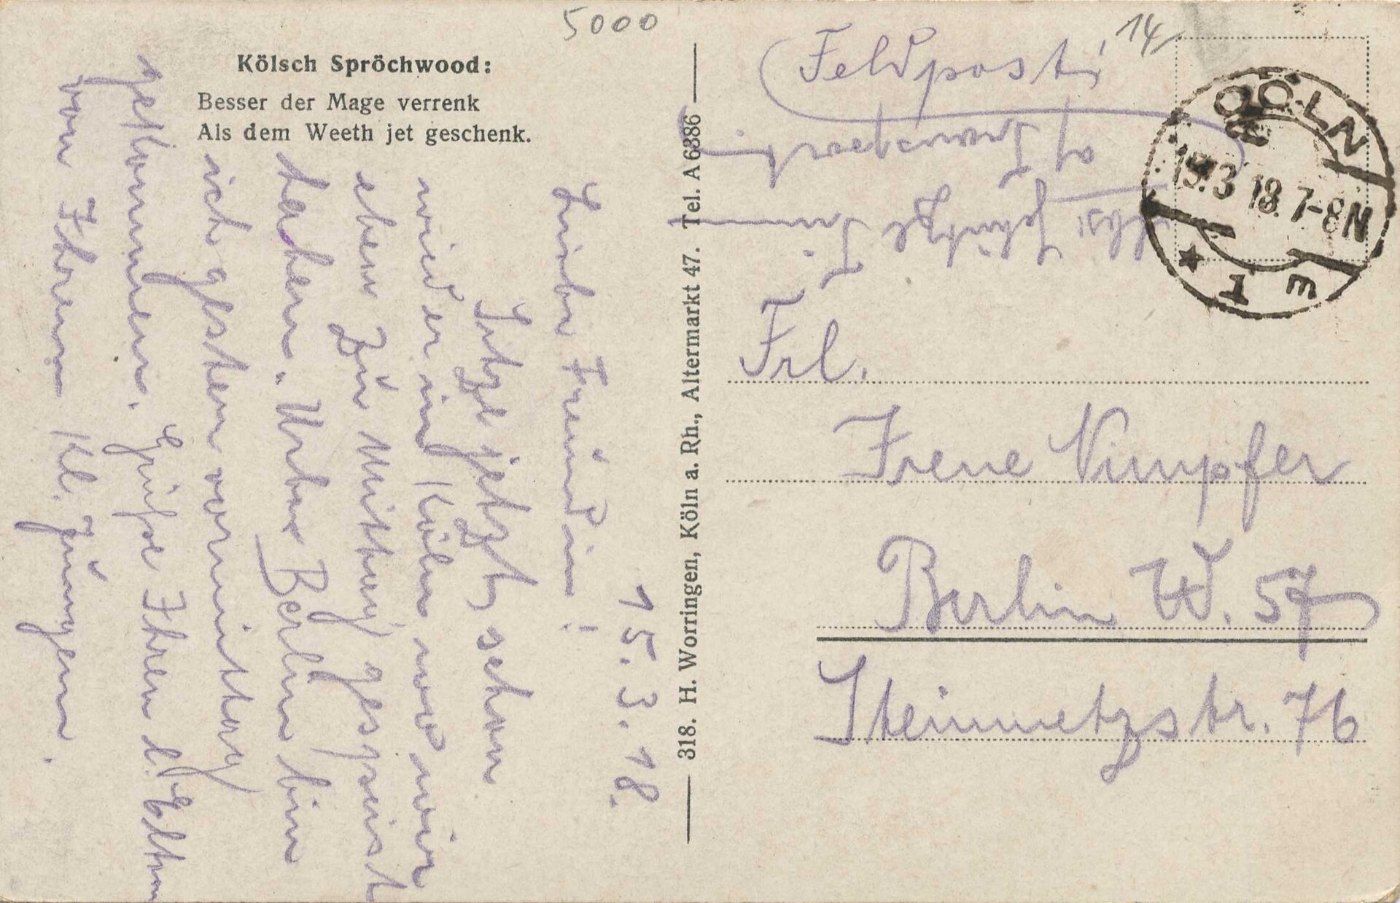 5000
14
Kölsch Spröchwood:
Besser der Mage verrenk
Als dem Weeth jet geschenk.
318. H. Worringen, Köln a. Rh., Altermarkt 47. Tel. A 6386
15. 3. 18.
Liebe Freundin!
Sitze jetzt schon
wieder in Köln wo wir
eben zu Mittag gespeist
haben. Über Berlin bin
ich gestern vormittag
gekommen. Grüße Ihren l. Eltern
von Ihrem kl. Jungen.
Feldpost!
CÖLN
15.3 18. 7-8N
★ 1 m
Frl.
Irene Vimpfer
Berlin W. 57
Steinmetzstr. 76